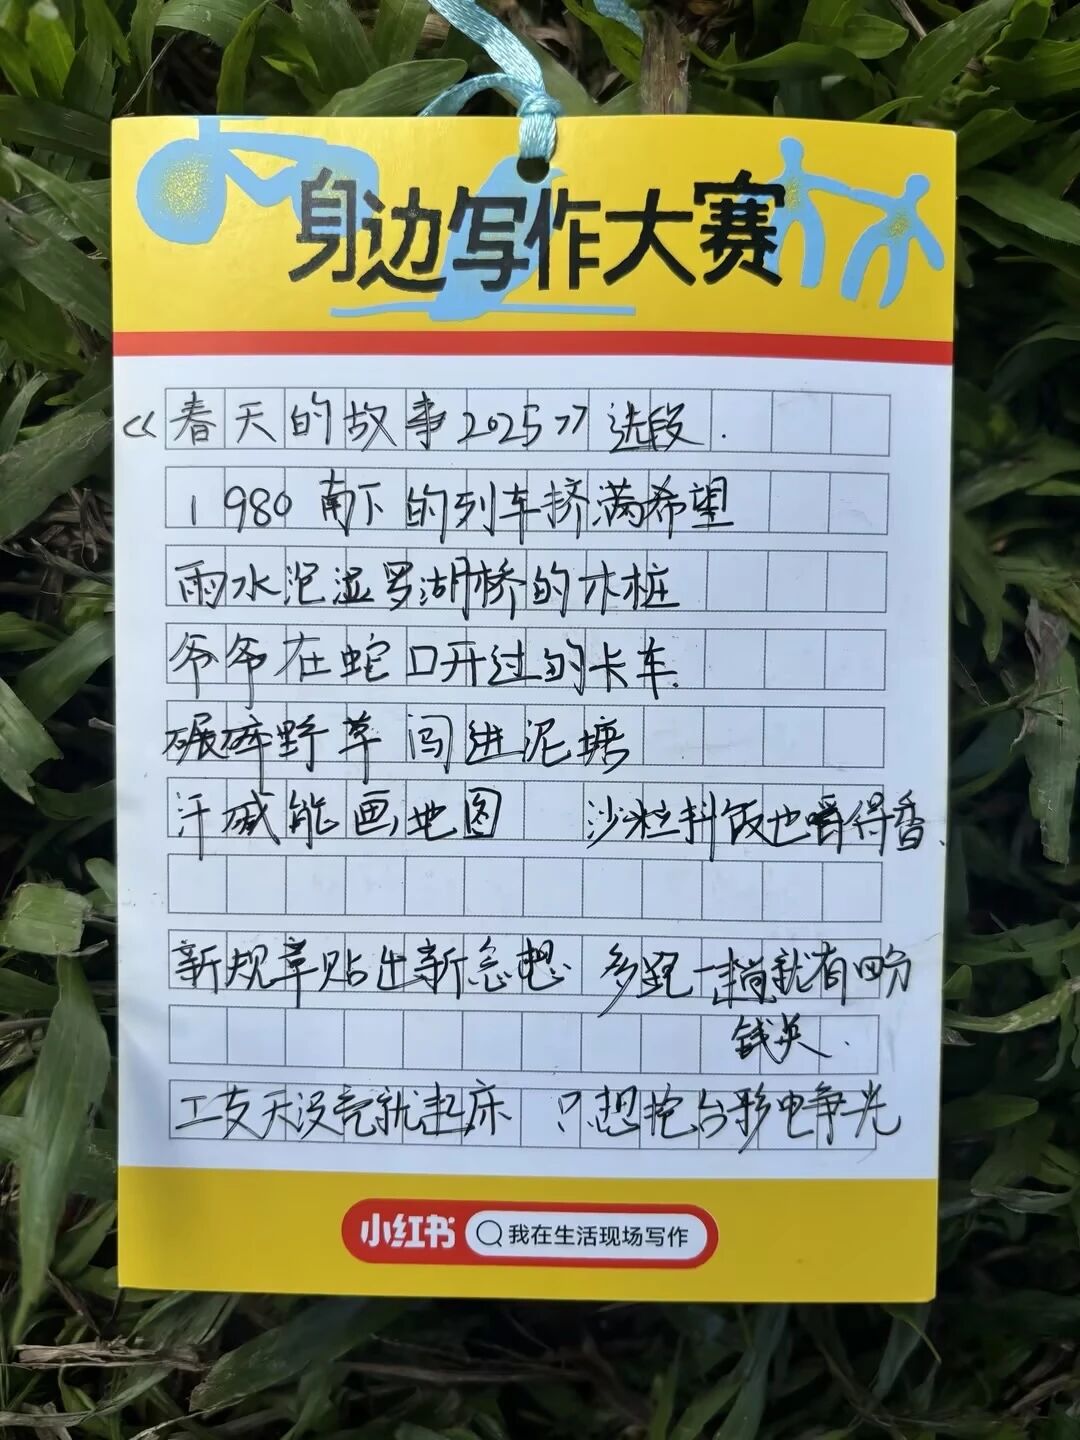 身边写作大赛
《春天的故事2025》选段.
1980南下的列车挤满希望
雨水泡湿罗湖桥的木桩
爷爷在蛇口开过的卡车.
碾碎野草闯进泥塘
汗碱能画地图 沙粒抖饭也嚼得香.
新规章贴出新念想 多跑一趟就有四分
钱奖.
工友天没亮就起床 只想挖台彩电争光
小红书 我在生活现场写作